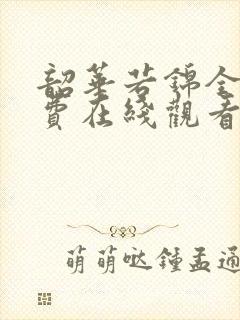 韶華若錦全
費在綫觀看
萌萌哒鍾孟通